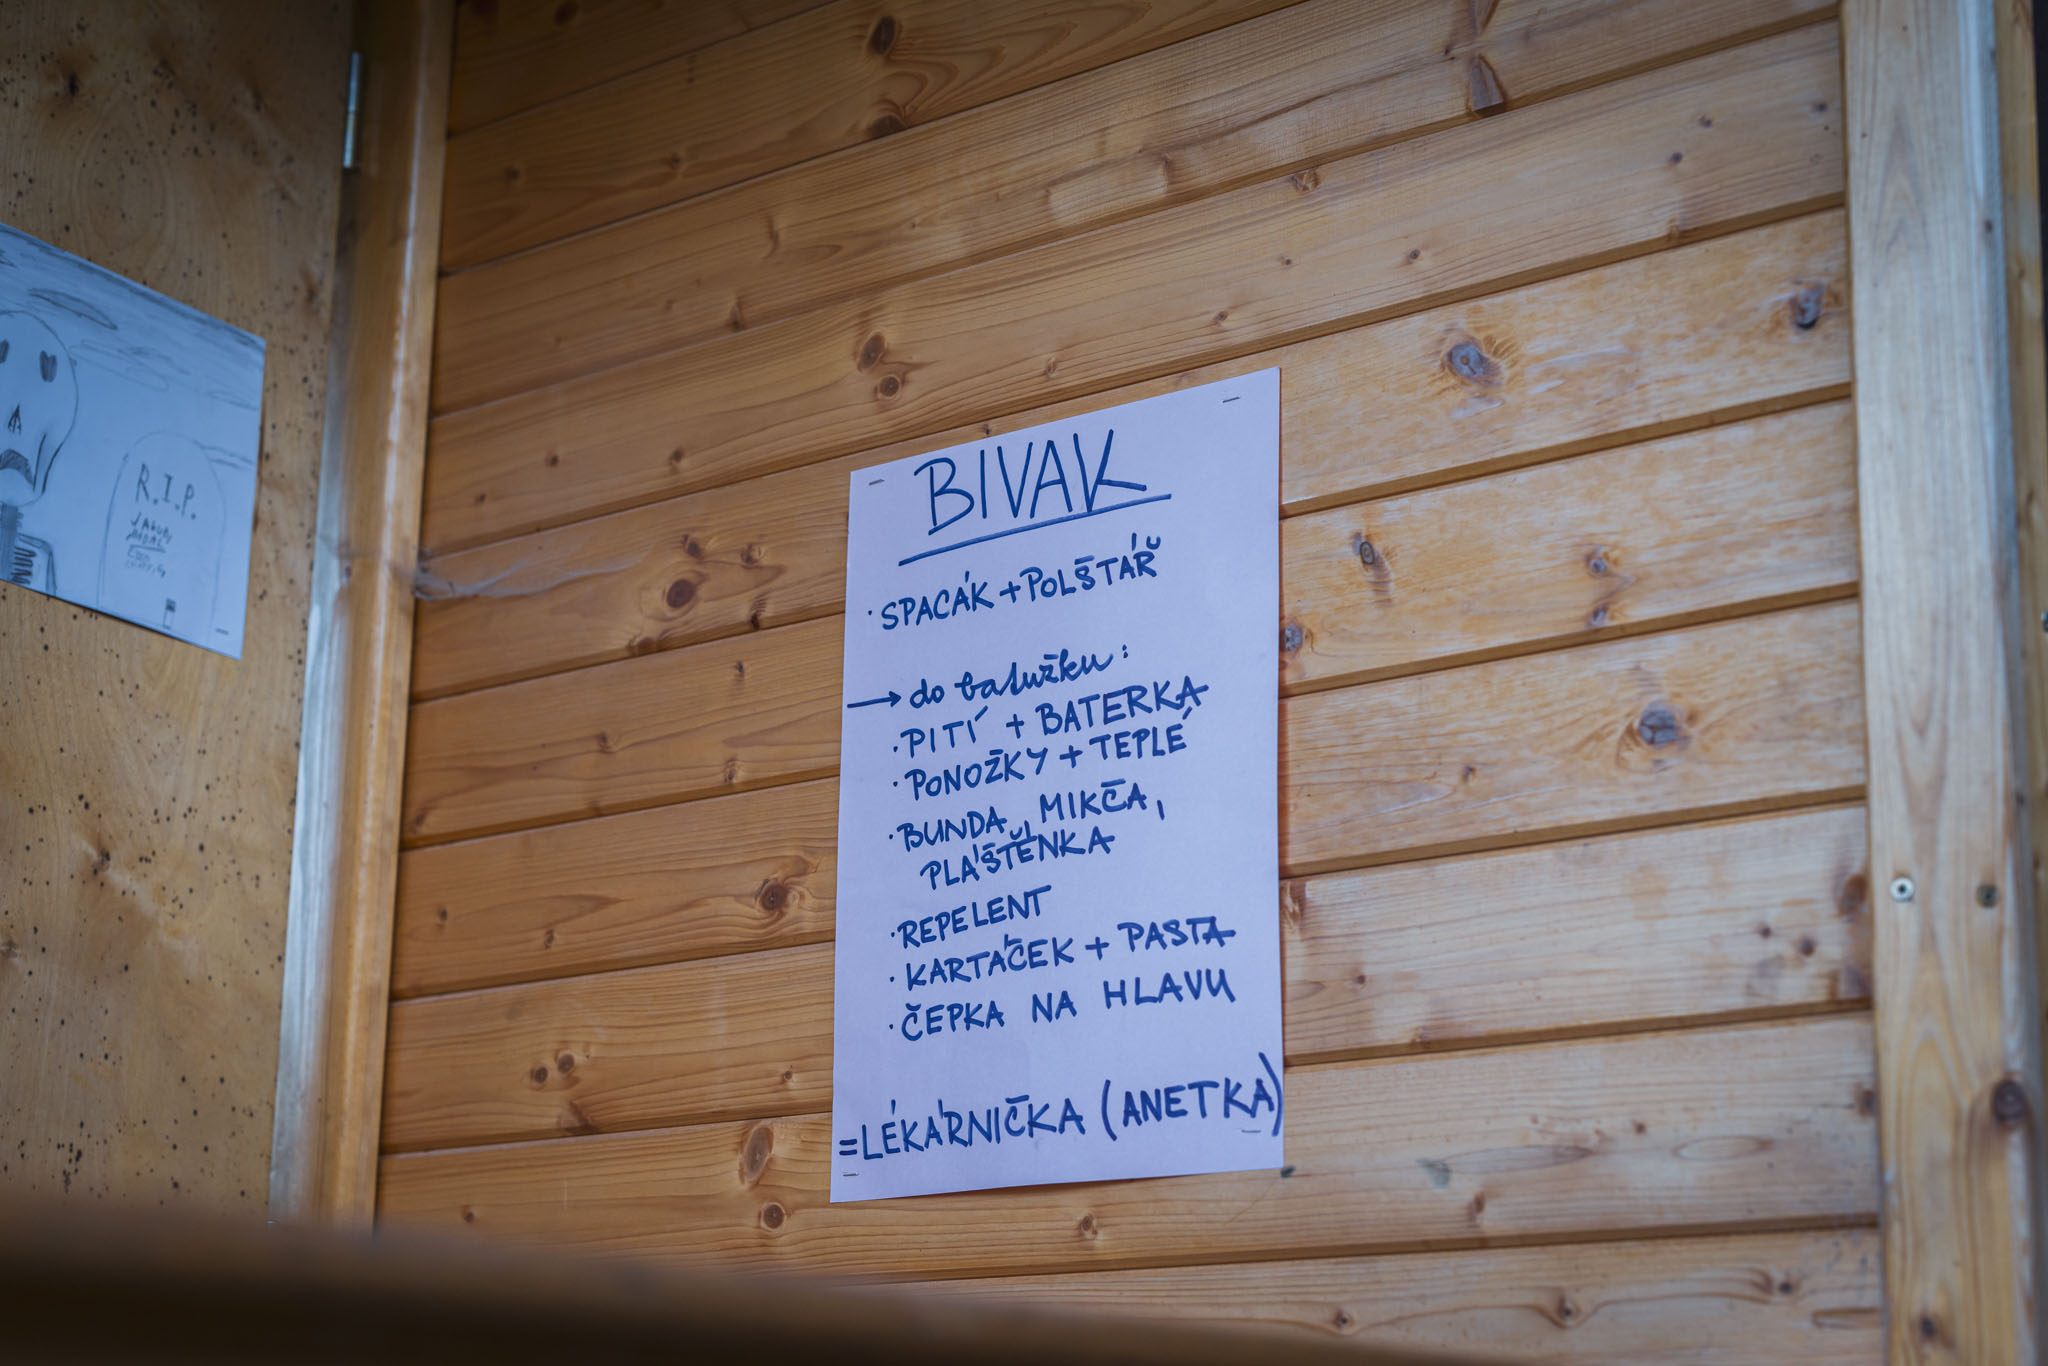 BIVAK
· SPACÁK + POLŠTÁŘ
→ do batužku:
· PITÍ + BATERKA
· PONOŽKY + TEPLÉ
· BUNDA, MIKČA,
PLÁŠTĚNKA
· REPELENT
· KARTÁČEK + PASTA
· ČEPKA NA HLAVU
= LÉKÁRNIČKA (ANETKA)
R.I.P.